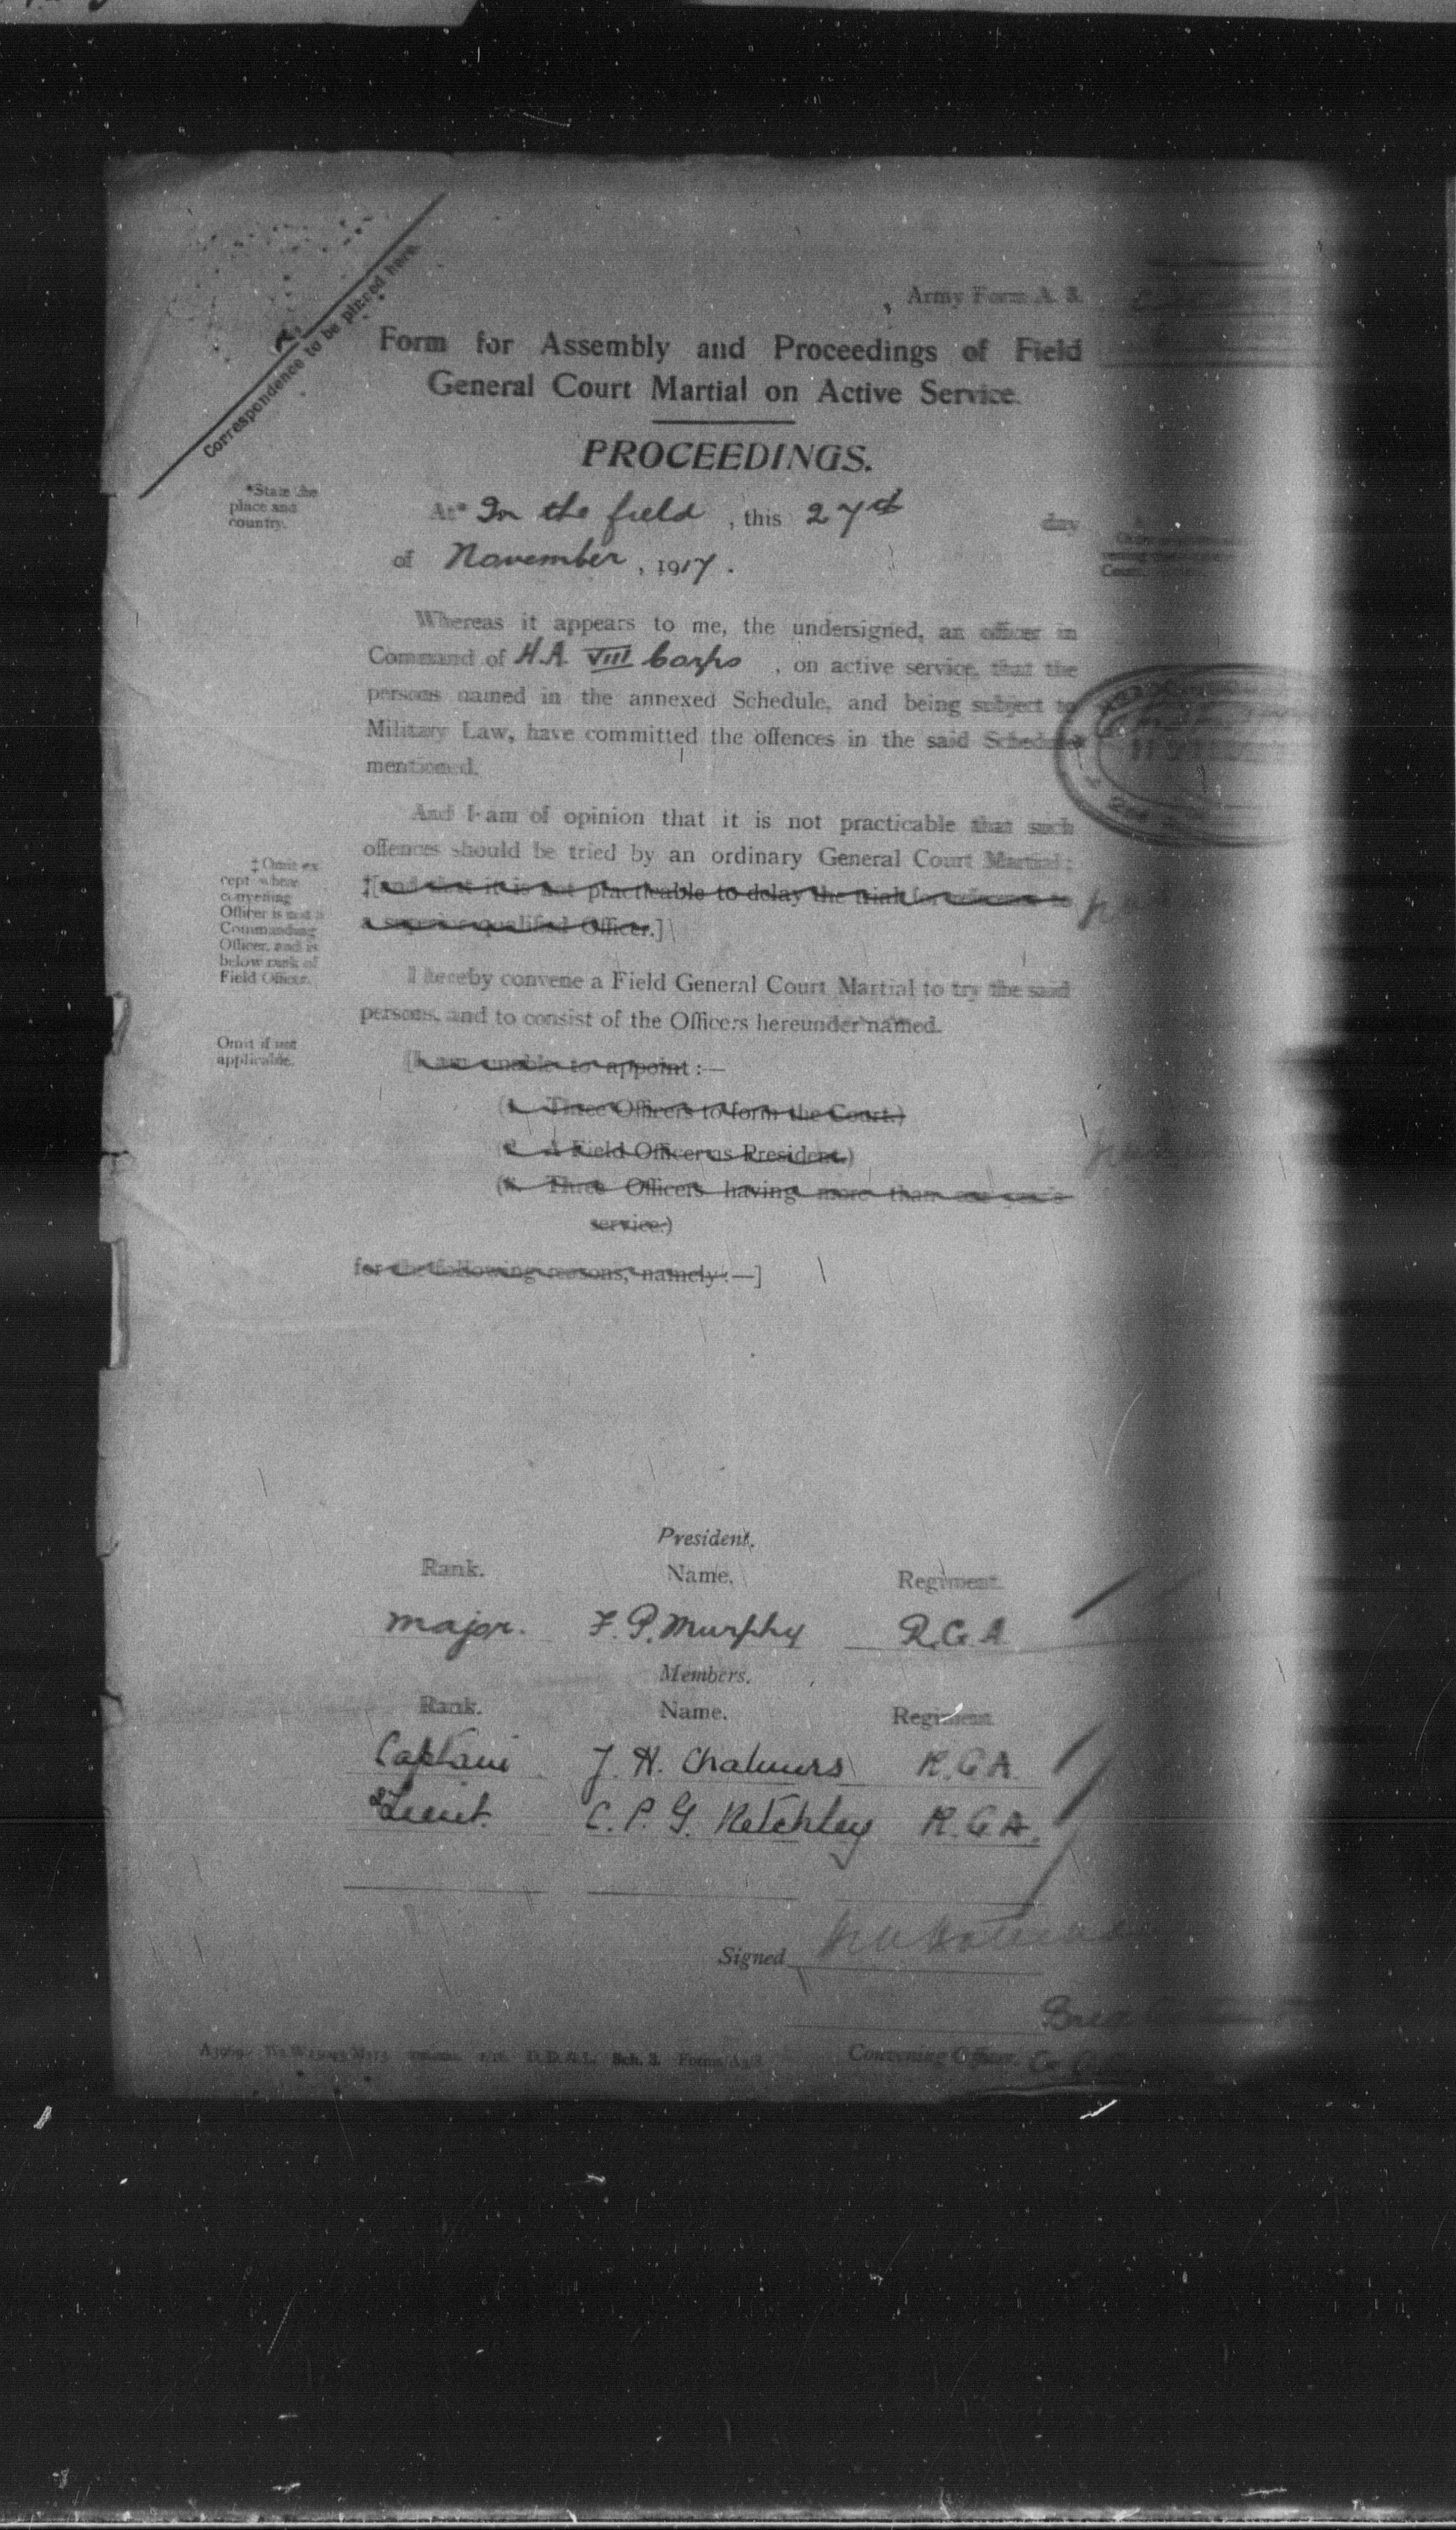 Army Form A. 3.
Correspondence to be placed here.
Form for Assembly and Proceedings of Field
General Court Martial on Active Service.
PROCEEDINGS.
*State the
place and
country.
At* In the field, this 27th day
of November, 1917.
Whereas it appears to me, the undersigned, an officer in
Command of H.A. VIII Corps, on active service, that the
persons named in the annexed Schedule, and being subject to
Military Law, have committed the offences in the said Schedule
mentioned.
And I am of opinion that it is not practicable that such
offences should be tried by an ordinary General Court Martial:
‡Omit ex
cept where
convening
Officer is not a
Commanding
Officer, and is
below rank of
Field Officer.
‡[and that it is not practicable to delay the trial for reference to
a superior qualified Officer.]
I hereby convene a Field General Court Martial to try the said
persons, and to consist of the Officers hereunder named.
Omit if not
applicable.
[I am unable to appoint :—
Three Officers to form the Court.)
A Field Officer as President.)
Three Officers having more than one year's
service.)
for the following reasons, namely :—]
President.
Rank. Name. Regiment.
Major. F. P. Murphy R.G.A
Members.
Rank. Name. Regiment.
Captain J. H. Chalmers R.G.A.
2/Lieut. C. P. G. Ketchley R.G.A.
Signed
Convening Officer.
Sch. 3. Forms/A3/8